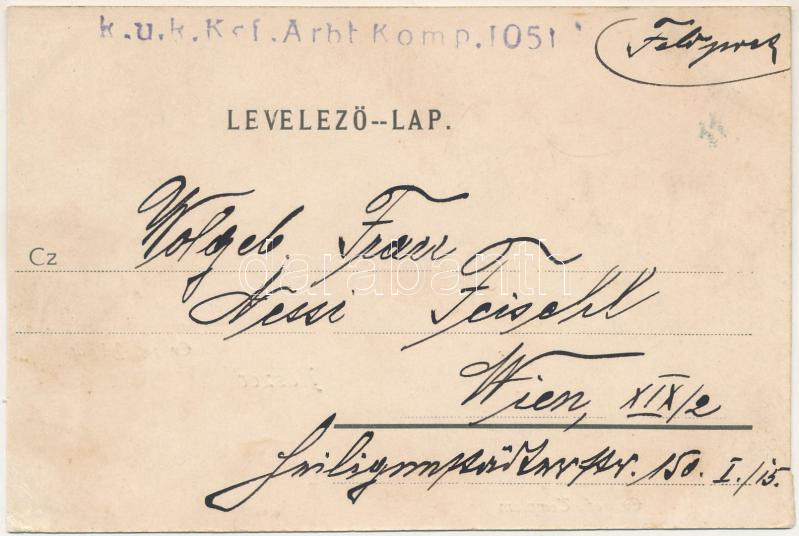 k.u.k. Kgf. Arbt Komp. 1051
Feldpost
LEVELEZÖ--LAP.
Wolgeb. Frau
Cz
darabanth
Nessi Feischl
Wien, XIX/2
Heiligenstädterstr. 150. I./15.